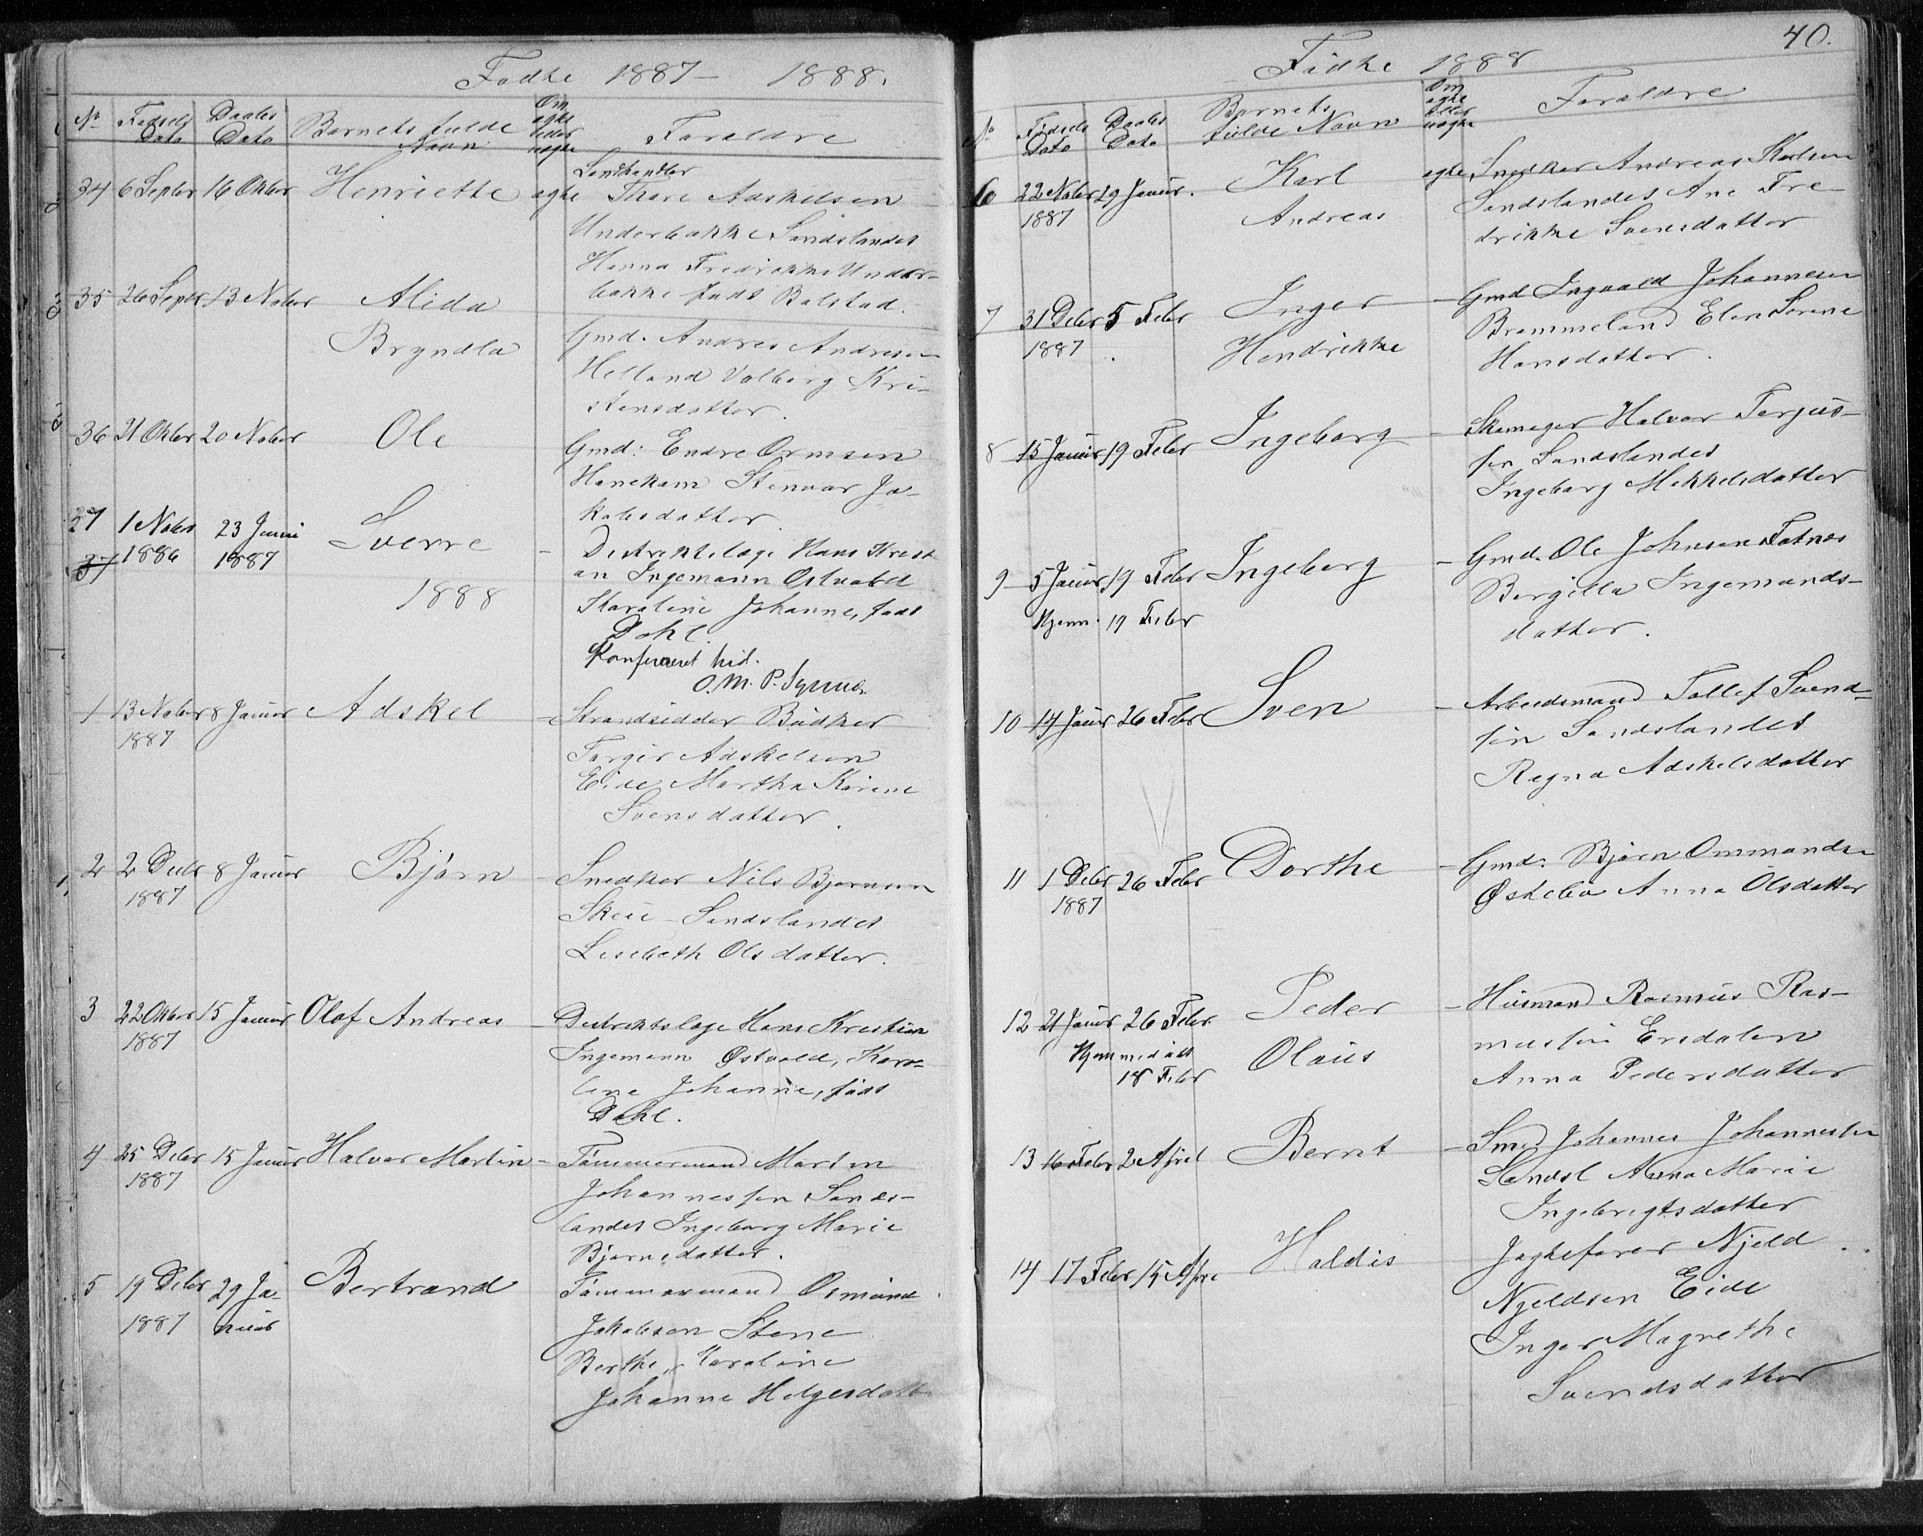 Fødte 1887 - 1888.
No Fødsels Dato Daabs Dato Barnets fulde Navn Om ægte eller uægte Forældre
34 6 Septbr 16 Oktbr Henriette ægte Landhandler
Thore Adskelsen
Underbakke Sandslandet
Hanna Fredrikke Under-
bakke født Balstad.
35 26 Septr 13 Novbr Alida
Bryndla
Gmd. Andres Andresen
Helland Valborg Kri-
stensdatter.
36 21 Oktbr 20 Novbr Ole
Gmd: Endre Ormsen
Hanekam Stenvor Ja-
kobsdatter.
27 1 Novbr 23 Juni Sverre -
37 1886 1887
Distriktslæge Hans Krist
an Ingemann Østvold
Karoline Johanne, født
Dahl.
1888
Konfereret hid.
O. M. P.
1 13 Novbr 8 Januar Adskel - Strandsidder Bødker
1887
Torger Adskelsen
Eide Martha Karine
Svensdatter.
2 2 Decbr 8 Januar Bjørn - Snedker Nils Bjørnsen
1887
Skeie - Sandslandet
Lisebeth Olsdatter.
3 22 Oktbr 15 Januar Olaf Andreas - Distriktslæge Hans Kristian
1887
Ingemann Østvold, Karo-
line Johanne, født
Dahl.
4 25 Decbr 15 Januar Halvor Martin - Tømmermand Martin
1887
Johannessen Sands-
landet Ingeborg Marie
Bjørnsdatter.
5 19 Decbr 29 Ja- Bertrand Tømmermand Osmund
1887 nuar
Jakobsen Stene
Berthe Karoline
Johanne Helgesdatt
40.
Fødte 1888
No Fødsels Dato Daabs Dato Barnets fulde Navn Om ægte eller uægte Forældre
6 22 Novbr 29 Januar. Karl ægte Snedker Andreas Karlsen
1887 Andreas
Sandslandet Ane Fre-
drikke Svensdatter
7 31 Decbr 5 Febr Inger - Gmd Ingvald Johannesen
1887 Hendrikke
Brommeland Elen Serine
Hansdatter.
8 15 Januar 19 Febr Ingeborg - Skomager Halvor Terjus-
sen Sandslandet
Ingeborg Mikkelsdatter
9 5 Januar 19 Febr Ingeborg - Gmd. Ole Johnsen Fatnes
Hjem. 19 Febr
Bergitta Ingemands-
datter.
10 14 Januar 26 Febr Sven - Arbeidsmand Tollef Svend-
sen Sandslandet
Ragna Adskelsdatter
11 1 Decbr 26 Febr Dorthe - Gmd: Bjørn Ommundsen
1887
Østebø Anna Olsdatter
12 21 Januar 26 Febr Peder - Husmand Rasmus Ras-
Hjemmedøbt
18 Febr Olaus
mussen Eredalen
Anna Pedersdatter
13 16 Febr 2 April Bernt - Smed Johannes Johannessen
Sandsl Anna Marie
Ingebrigtsdatter
14 17 Febr 15 Apr Haldis Jægtefører Njeld
Njeldsen Eide
Inger Magrethe
Svendsdatter